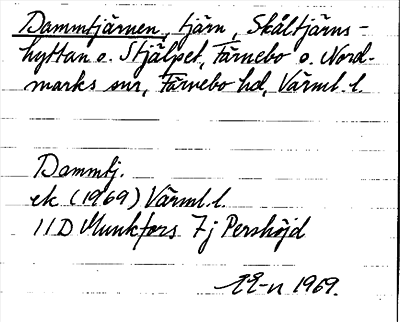 Dammtjärnen, tjärn, Skåltjärns-
hyttan o. Stjälpet, Färnebo o. Nord-
marks snr, Färnebo hd, Värml. l.
Dammtj.
ek (1969) Värml. l.
11D Munkfors 7j Pershöjd
1969.